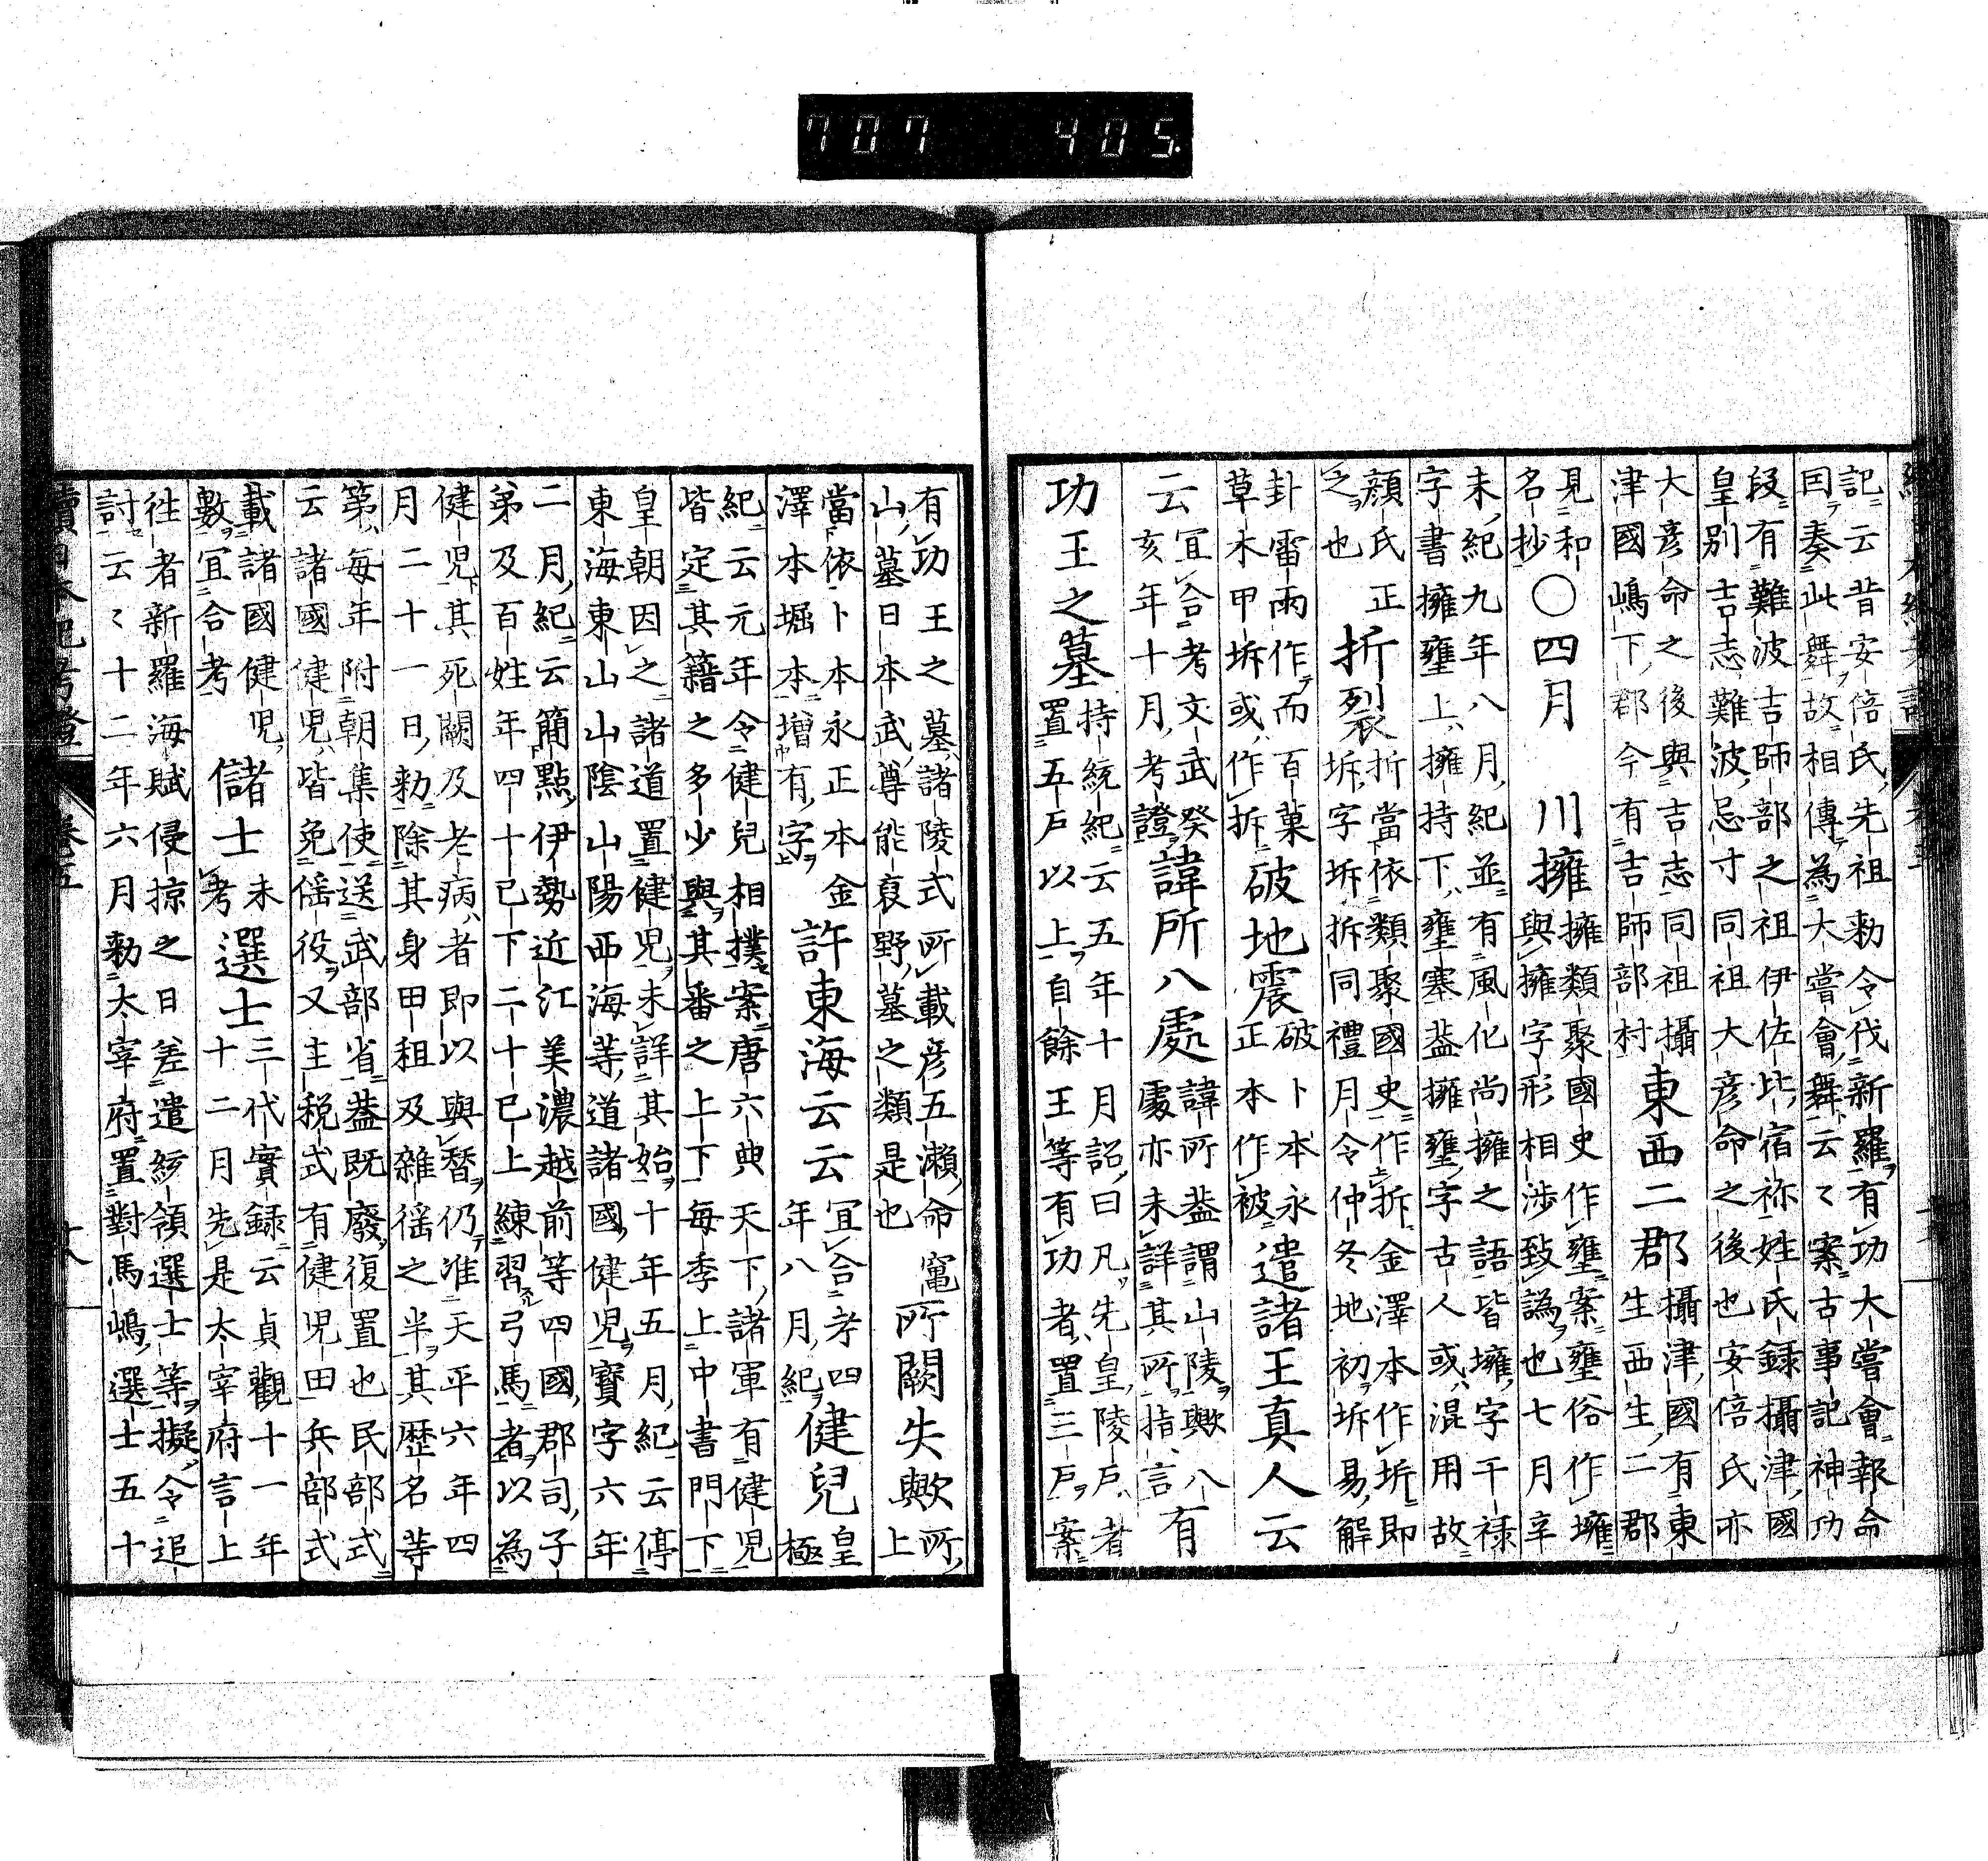 707 405.
記云昔安倍氏先祖勅令伐新羅有功大嘗會報命
曰奏此舞故相傳為大嘗會舞云〻案古事記神功
段有難波吉師部之祖伊佐比宿祢姓氏録攝津國
皇別吉志難波忌寸同祖大彦命之後也安倍氏亦
大彦命之後與吉志同祖攝
津國嶋下郡今有吉師部村
東西二郡
攝津國有東
生西生二郡
見和
名抄
〇四月
川擁
擁類聚國史作壅案壅俗作擁
與擁字形相渉致譌也七月辛
未紀九年八月紀並有風化尚擁之語皆擁字干禄
字書擁壅上擁持下壅塞蓋擁壅字古人或混用故
顔氏正
之也
折裂
折當依類聚國史作拆金澤本作坼即
坼字坼拆同禮月令仲冬地初坼易解
卦雷雨作而百菓
草木甲坼或作拆
破地震
破卜本永
正本作被
遣諸王真人云
云
宜合考文武癸
亥年十月考證
諱所八處
諱所蓋謂山陵歟八
處亦未詳其所指言
有
功王之墓
持統紀云五年十月詔曰凡先皇陵戸者
置五戸以上自餘王等有功者置三戸案
有功王之墓諸陵式所載彦五瀬命竃
山墓日本武尊能裒野墓之類是也
所闕失歟
所上
當依卜本永正本金
澤本堀本增有字
許東海云云
宜合考四
年八月紀
健兒
皇極
紀云元年令健兒相撲案唐六典天下諸軍有健児
皆定其籍之多少與其番之上下每季上中書門下
皇朝因之諸道置健児未詳其始十年五月紀云停
東海東山山陰山陽西海等道諸國健児寳字六年
二月紀云簡點伊勢近江美濃越前等四國郡司子
弟及百姓年四十已下二十已上練習弓馬者以為
健児其死闕及老病者即以與替仍准天平六年四
月二十一日勅除其身田租及雜徭之半其歴名等
第每年附朝集使送武部省蓋既廢復置也民部式
云諸國健児皆免徭役又主税式有健児田兵部式
載諸國健児
數宜合考
儲士
未考
選士
三代實録云貞觀十一年
十二月先是太宰府言上
徃者新羅海賊侵掠之日差遣綾領選士等擬令追
討云〻十二年六月勅太宰府置對馬嶋選士五十
續日本紀考證
卷五